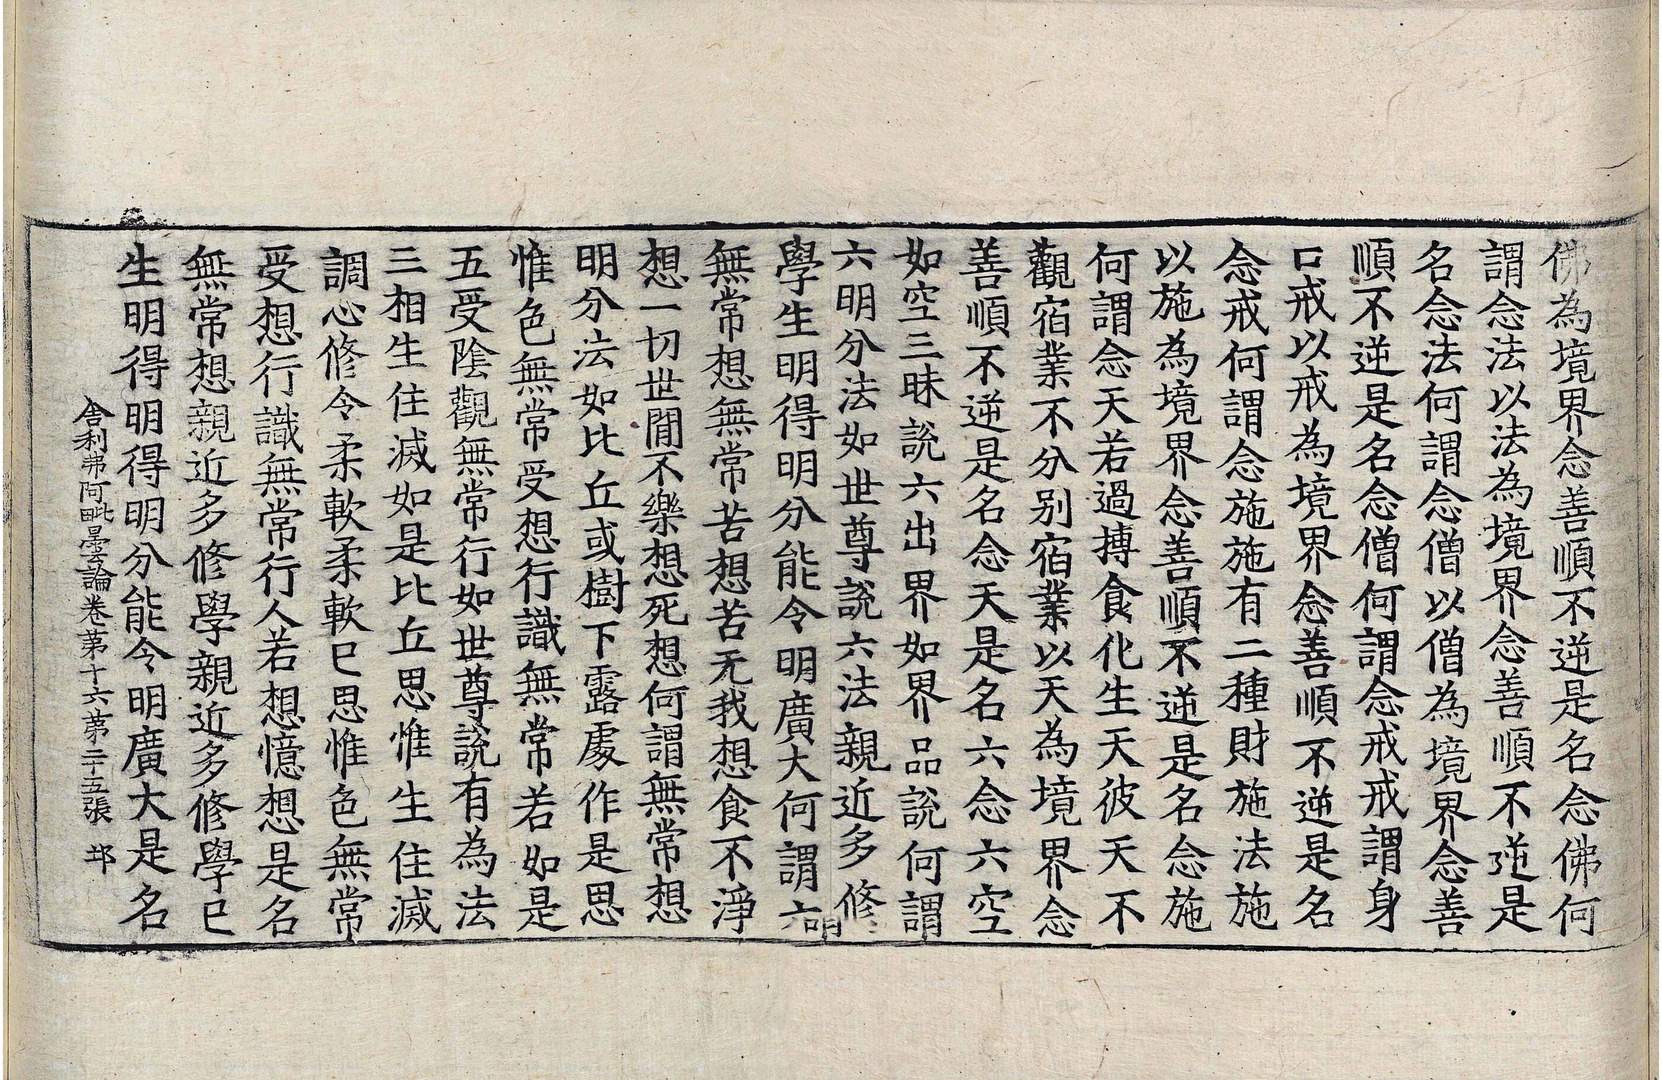 佛為境界念善順不逆是名念佛何
謂念法以法為境界念善順不逆是
名念法何謂念僧以僧為境界念善
順不逆是名念僧何謂念戒戒謂身
口戒以戒為境界念善順不逆是名
念戒何謂念施施有二種財施法施
以施為境界念善順不逆是名念施
何謂念天若過摶食化生天彼天不
觀宿業不分别宿業以天為境界念
善順不逆是名念天是名六念六空
如空三昧說六出界如界品說何謂
六明分法如世尊說六法親近多修
學生明得明分能令明廣大何謂六明
無常想無常苦想苦无我想食不淨
想一切世間不樂想死想何謂無常想
明分法如比丘或樹下露處作是思
惟色無常受想行識無常若如是
五受陰觀無常行如世尊說有為法
三相生住滅如是比丘思惟生住滅
調心修令柔軟柔軟已思惟色無常
受想行識無常行人若想憶想是名
無常想親近多修學親近多修學已
生明得明得明分能令明廣大是名
舍利弗阿毗曇論卷第十六第二十五張 𨚗